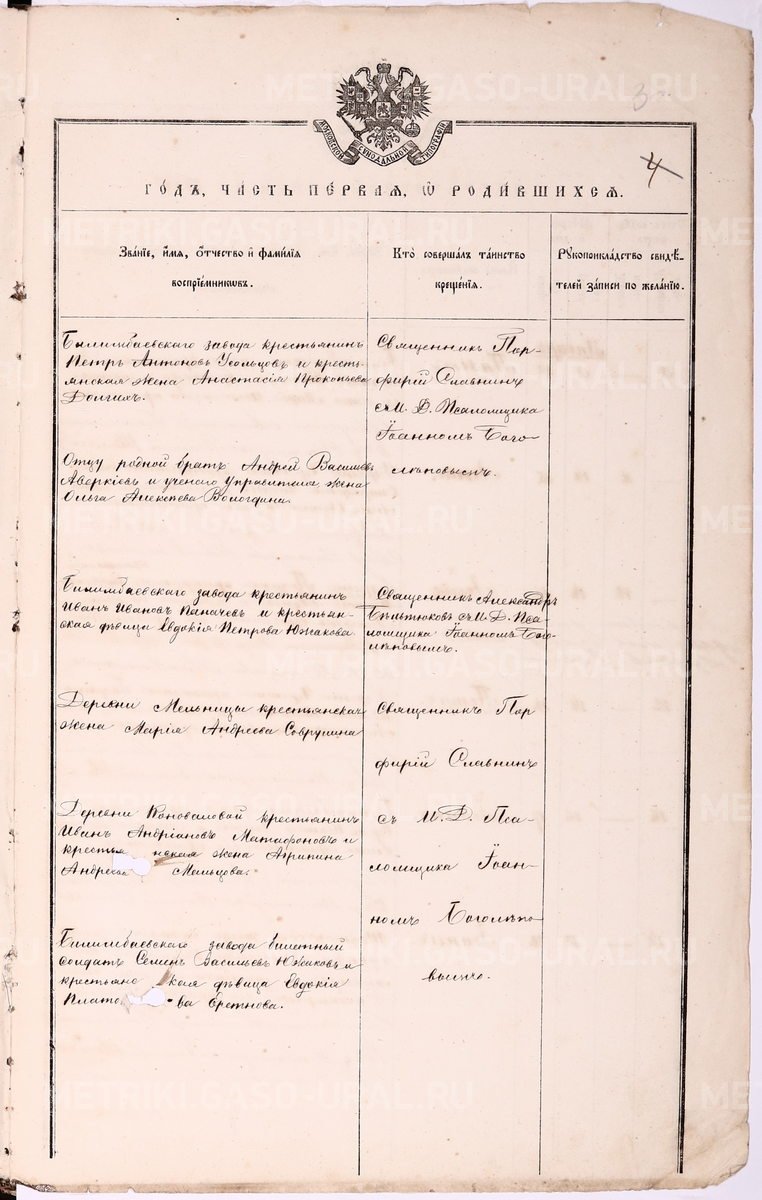 3
МОСКОВСКОЙ СѴНОДАЛЬНОЙ ТИПОГРАФІИ
4
ГО́ДЪ, ЧА́СТЬ ПЕ́РВАЯ, Ѡ҆ РОДИ́ВШИХСЯ.
Зва́нїе, и҆́мя, ѻ҆́тчество и҆ фами́лїя
воспрїе́мникѡвъ.
Кто̀ соверша́лъ та́инство
креще́нїя.
Рꙋкоприкла́дство свидѣ́-
телей за́писи по жела́нїю.
Билимбаевскаго завода крестьянинъ
Петръ Антоновъ Усольцовъ и кресть-
янская жена Анастасія Прокопьева
Долгихъ.
Священникъ Пор-
фирій Славнинъ
съ И. Д. Псаломщика
Іоанномъ Бого-
лѣповымъ.
Отцу родной братъ Андрей Васильевъ
Аверкіевъ и ученого управителя жена
Ольга Алексѣева Вологдина.
Билимбаевскаго завода крестьянинъ
Иванъ Ивановъ Папачевъ и крестьян-
ская дѣвица Евдокія Петрова Южакова
Священникъ Александръ
Бѣльтюковъ съ И. Д. Пса-
ломщика Іоанномъ Бого-
лѣповымъ.
Деревни Мельницы крестьянская
жена Марія Андреева Соврулина
Священникъ Пор
фирій Славнинъ
съ И. Д. Пса-
ломщика Іоан-
номъ Боголѣпо-
вымъ.
Деревни Коноваловой крестьянинъ
Иванъ Андріановъ Матафоновъ и
крестья нская жена Агрипина
Андреева Мальцова.
Билимбаевскаго завода билетный
солдатъ Семенъ Васильевъ Южаковъ и
крестьянс кая дѣвица Евдокія
Плато ва Еретнова.
METRIKI.GASO-URAL.RU